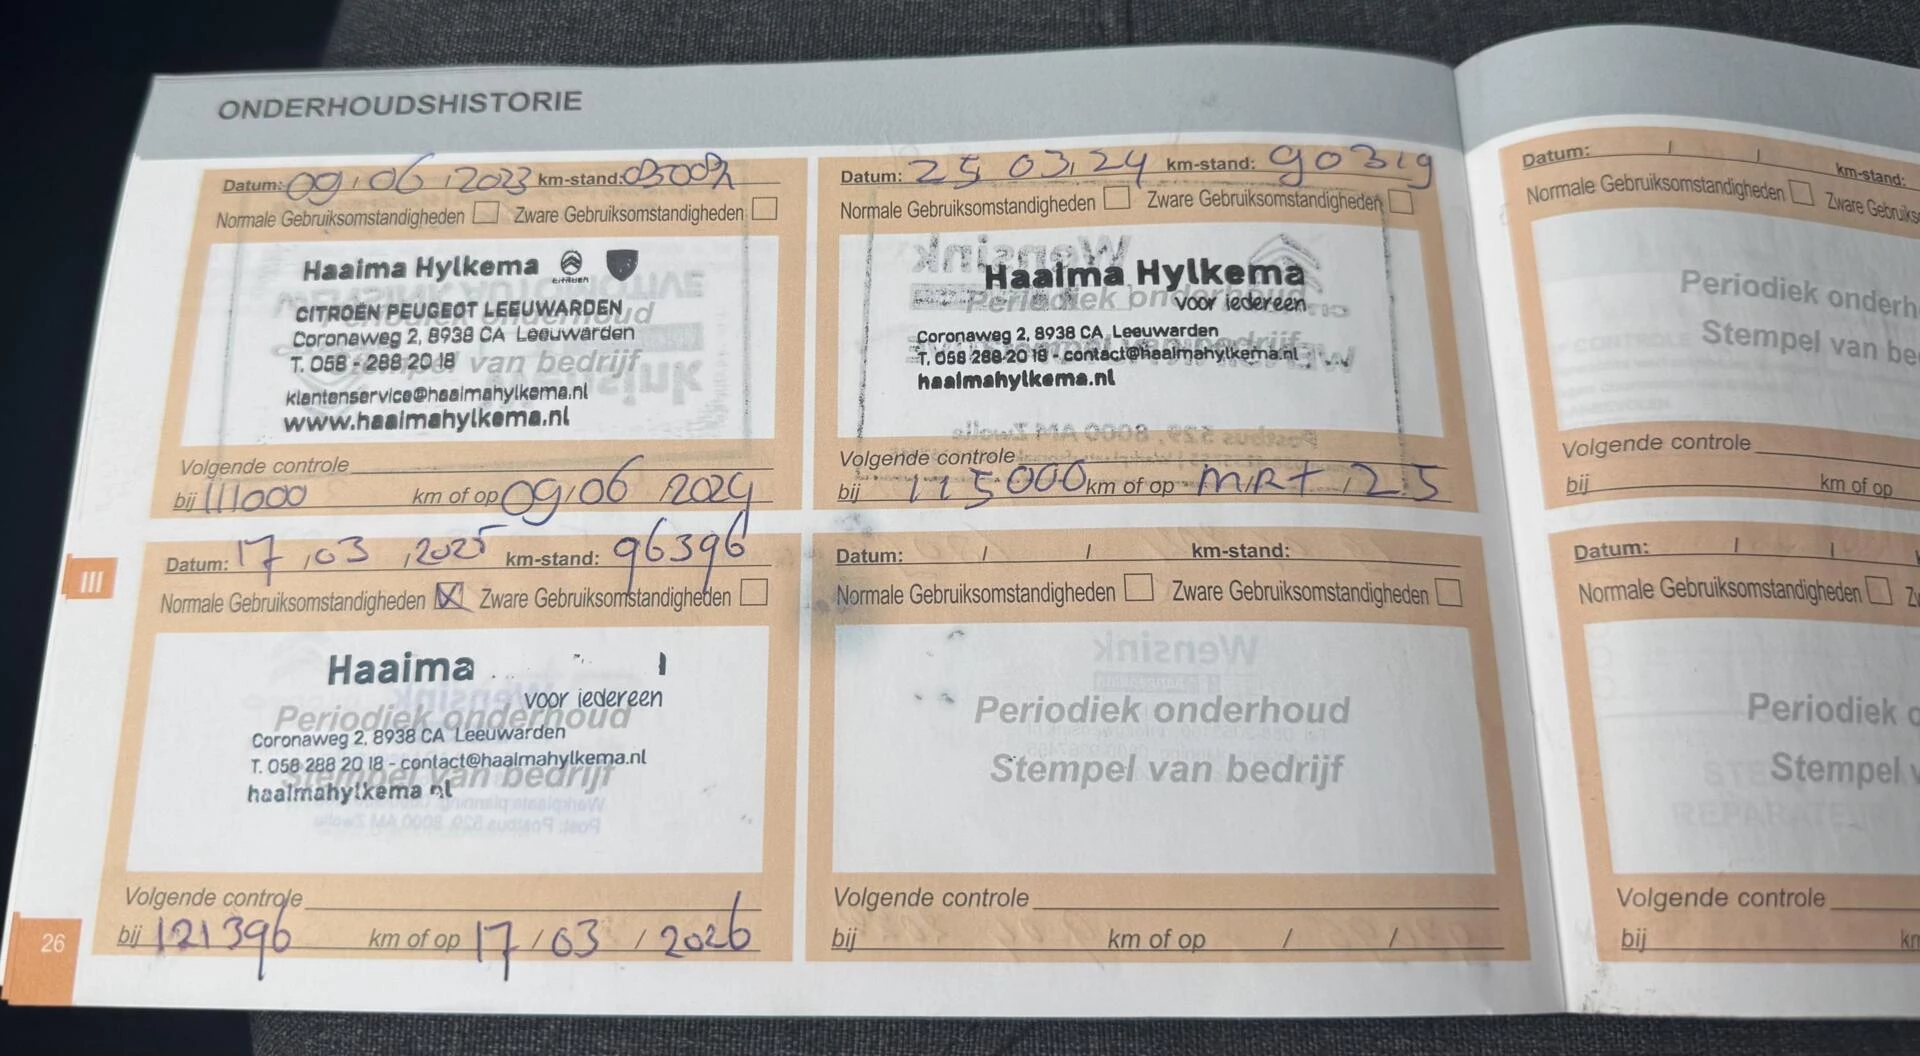 ONDERHOUDSHISTORIE
Datum: 09 / 06 / 2023 km-stand:
Normale Gebruiksomstandigheden Zware Gebruiksomstandigheden
Haaima Hylkema CITROËN
CITROËN PEUGEOT LEEUWARDEN
Coronaweg 2, 8938 CA Leeuwarden
T. 058 - 288 20 18
klantenservice@haaimahylkema.nl
www.haaimahylkema.nl
Periodiek onderhoud
Stempel van bedrijf
Volgende controle
bij 111000 km of op 09 / 06 / 2024
Datum: 25 / 03 / 24 km-stand: 90319
Normale Gebruiksomstandigheden Zware Gebruiksomstandigheden
Haaima Hylkema
voor iedereen
Coronaweg 2, 8938 CA Leeuwarden
T. 058 288 20 18 - contact@haaimahylkema.nl
haaimahylkema.nl
Periodiek onderhoud
Stempel van bedrijf
Volgende controle
bij 115000 km of op MRT / 25
Datum: 17 / 03 / 2025 km-stand: 96396
Normale Gebruiksomstandigheden X Zware Gebruiksomstandigheden
Haaima
voor iedereen
Periodiek onderhoud
Coronaweg 2, 8938 CA Leeuwarden
T. 058 288 20 18 - contact@haaimahylkema.nl
Stempel van bedrijf
haaimahylkema nl
Volgende controle
bij 121396 km of op 17 / 03 / 2026
Datum: / / km-stand:
Normale Gebruiksomstandigheden Zware Gebruiksomstandigheden
Periodiek onderhoud
Stempel van bedrijf
Volgende controle
bij km of op / /
III
26
Datum: / / km-stand:
Normale Gebruiksomstandigheden Zware Gebruiks
Periodiek onderh
Stempel van be
Volgende controle
bij km of op
Datum: / /
Normale Gebruiksomstandigheden Zw
Periodiek o
Stempel v
Volgende controle
bij km